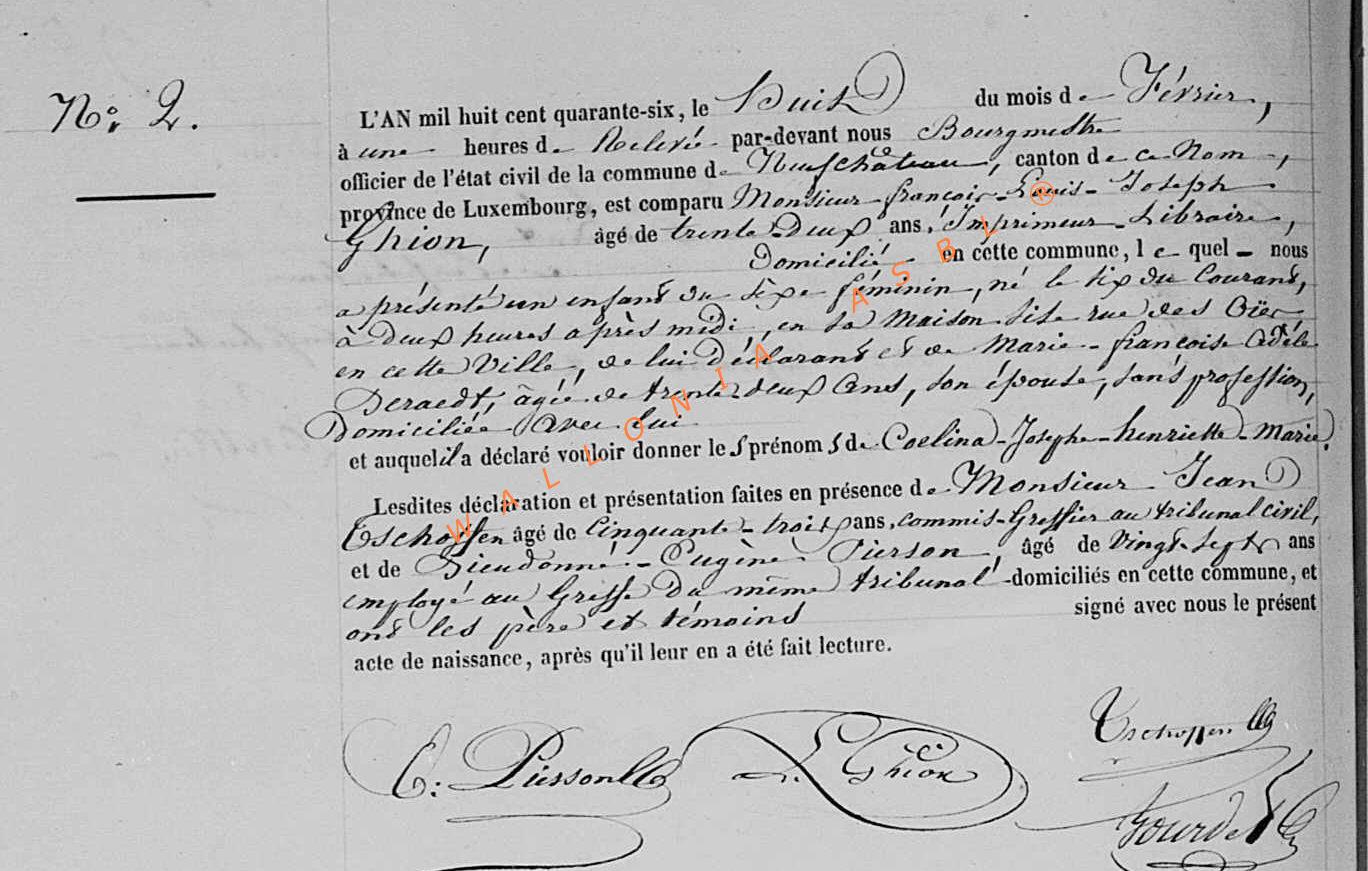 N° 2.
L'AN mil huit cent quarante-six, le huit du mois de Février,
à une heures de Relevé par-devant nous Bourgmestre
officier de l'état civil de la commune de Neufchâteau, canton de ce Nom,
province de Luxembourg, est comparu Monsieur françois-Louis-Joseph
Ghion, âgé de trente-Deux ans, Imprimeur-Libraire,
Domicilié en cette commune, le quel nous
a présenté un enfant du sèxe féminin, né le six du Courant,
à deux heures après midi, en sa Maison sise rue des
en cette Ville, de lui Déclarant et de Marie-françoise Adèle
Deraedt, âgée de trente deux Ans, son épouse, sans profession,
Domiciliée Avec lui
et auquel il a déclaré vouloir donner les prénoms de Coelina-Josephe-henriette-Marie.
Lesdites déclaration et présentation faites en présence de Monsieur Jean
Tschoffen âgé de Cinquante-trois ans, commis-Greffier au tribunal civil,
et de Dieudonné-Eugène Pierson, âgé de Vingt-Sept ans
employé au Greffe du même tribunal domiciliés en cette commune, et
ont les père et témoins signé avec nous le présent
acte de naissance, après qu'il leur en a été fait lecture.
E: Pierson L. Ghion Tschoffen
Gourdet
WALLONIA ASBL ®